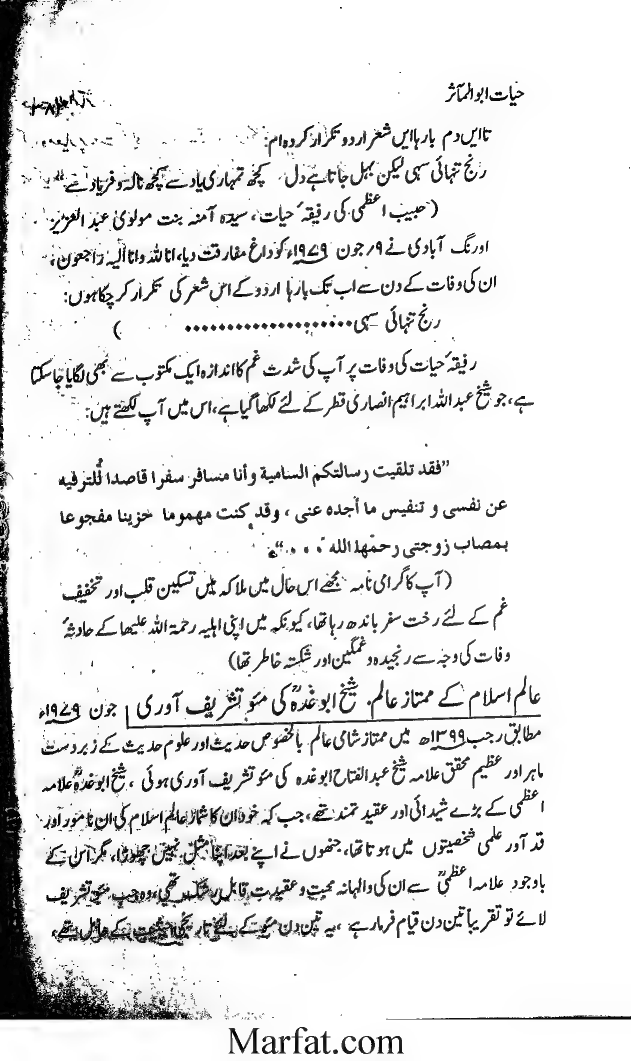 حیات ابوالمآثر
تا ایں دم بارہا ایں شعر اردو تکرار کردہ ام:
رنج تنہائی سہی لیکن بہل جاتا ہے دل کچھ تمہاری یاد سے کچھ نالہ و فریاد سے"
(حبیب اعظمی کی رفیقۂ حیات، سیدہ آمنہ بنت مولوی عبد العزیز
اورنگ آبادی نے ۹؍ جون ۱۹۷۹ء کو داغ مفارقت دیا، انا للہ وانا الیہ راجعون،
ان کی وفات کے دن سے اب تک بارہا اردو کے اس شعر کی تکرار کر چکا ہوں:
رنج تنہائی سہی.....................)
رفیقۂ حیات کی وفات پر آپ کی شدت غم کا اندازہ ایک مکتوب سے بھی لگایا جا سکتا
ہے، جو شیخ عبد اللہ ابراہیم انصاری قطر کے لئے لکھا گیا ہے، اس میں آپ لکھتے ہیں:
"فقد تلقيت رسالتكم السامية وأنا مسافر سفرا قاصدا للترفيه
عن نفسى و تنفيس ما أجده عنى ، وقد كنت مهموما حزينا مفجوعا
بمصاب زوجتى رحمها الله ....."
(آپ کا گرامی نامہ مجھے اس حال میں ملا کہ میں تسکین قلب اور تخفیف
غم کے لئے رخت سفر باندھ رہا تھا، کیونکہ میں اپنی اہلیہ رحمۃ اللہ علیہا کے حادثۂ
وفات کی وجہ سے رنجیدہ و غمگین اور شکستہ خاطر تھا)
عالم اسلام کے ممتاز عالم شیخ ابو غدہؒ کی مئو تشریف آوری | جون ۱۹۷۹ء
مطابق رجب ۱۳۹۹ھ میں ممتاز شامی عالم بالخصوص حدیث اور علوم حدیث کے زبردست
ماہر اور عظیم محقق علامہ شیخ عبدالفتاح ابو غدہ کی مئو تشریف آوری ہوئی، شیخ ابو غدہؒ علامہ
اعظمی کے بڑے شیدائی اور عقیدتمند تھے، جب کہ خود ان کا شمار عالم اسلام کی ان نامور اور
قد آور علمی شخصیتوں میں ہوتا تھا، جنھوں نے اپنے بعد اپنا مثل نہیں چھوڑا، مگر اس کے
باوجود علامہ اعظمیؒ سے ان کی والہانہ محبت و عقیدت قابل رشک تھی، وہ جب مئو تشریف
لائے تو تقریباً تین دن قیام فرما رہے، یہ تین دن مئو کے لئے تاریخی اہمیت کے حامل تھے،
Marfat.com